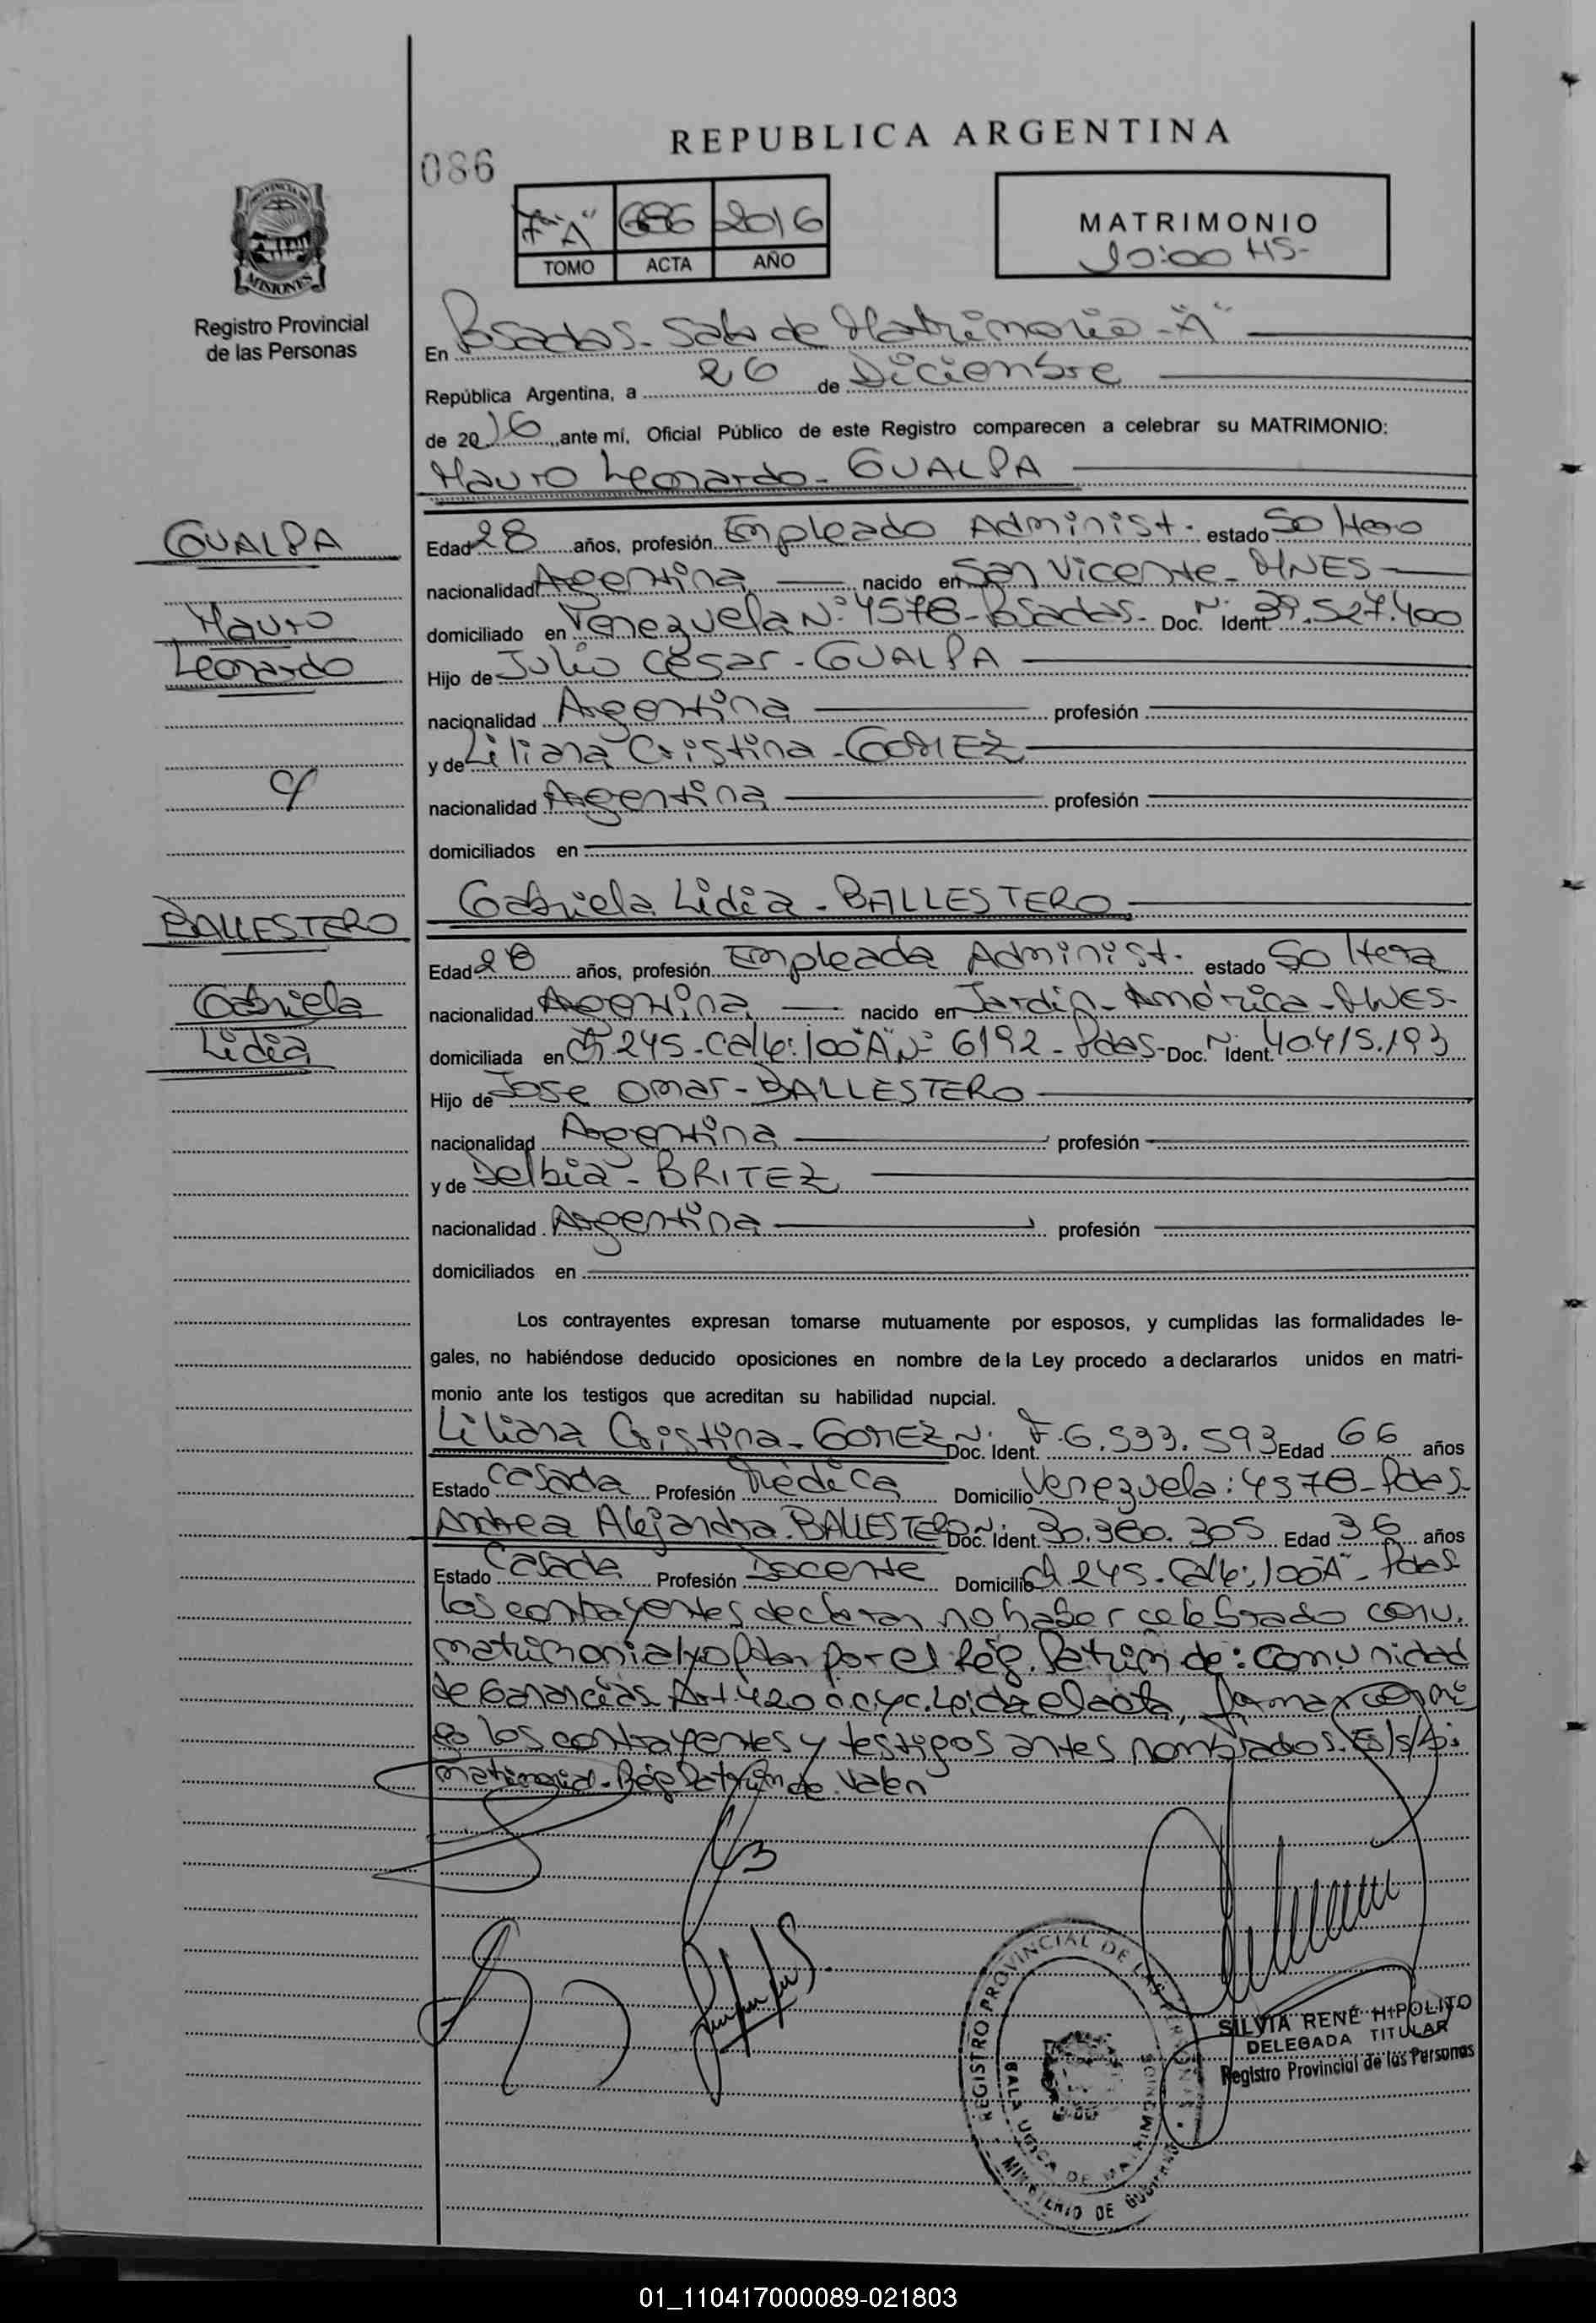 REPUBLICA ARGENTINA
086
PROVINCIA DE
MISIONES
Registro Provincial
de las Personas
7º "A" 686 2016
TOMO ACTA AÑO
MATRIMONIO
10:00 HS-
En Posadas - Sala de Matrimonio - "A"
República Argentina, a 26 de Diciembre
de 2016, ante mí, Oficial Público de este Registro comparecen a celebrar su MATRIMONIO:
Mauro Leonardo - GUALPA
GUALPA
Mauro
Leonardo
c/
BALLESTERO
Gabriela
Lidia
Edad 28 años, profesión Empleado Administ. estado Soltero
nacionalidad Argentina nacido en San Vicente - MNES
domiciliado en Venezuela Nº 4578 - Posadas - Doc. Nº Ident. 39.527.400
Hijo de Julio César - GUALPA
nacionalidad Argentina profesión
y de Liliana Cristina - GOMEZ
nacionalidad Argentina profesión
domiciliados en
Gabriela Lidia - BALLESTERO
Edad 28 años, profesión Empleada Administ. estado Soltera
nacionalidad Argentina nacido en Jardín - América - MNES -
domiciliada en Ch 245 - Calle: 100 "A" Nº 6192 - Pdas - Doc. Nº Ident. 40.415.193
Hijo de Jose Omar - BALLESTERO
nacionalidad Argentina profesión
y de Delbia - BRITEZ
nacionalidad Argentina profesión
domiciliados en
Los contrayentes expresan tomarse mutuamente por esposos, y cumplidas las formalidades le-
gales, no habiéndose deducido oposiciones en nombre de la Ley procedo a declararlos unidos en matri-
monio ante los testigos que acreditan su habilidad nupcial.
Liliana Cristina - GOMEZ Doc. Nº Ident. F. 6.533.593 Edad 66 años
Estado Casada Profesión Médica Domicilio Venezuela: 4578 - Pdas -
Andrea Alejandra - BALLESTERO Doc. Nº Ident. 30.360.305 Edad 36 años
Estado Casada Profesión Docente Domicilio Ch 245 - Calle: 100 "A" - Pdas
Los contrayentes declaran no haber celebrado conv.
matrimonial y optan por el Rég. Patrim de: Comunidad
de Ganancias Art. 420 c.c.yc. Leida el acta, firman con mi
go los contrayentes y testigos antes nombrados. E/s/b:
matrimonial - Rég Patrim de. Valen
REGISTRO PROVINCIAL DE LAS PERSONAS
SALA UNICA DE MATRIMONIOS
MINISTERIO DE GOBIERNO
SILVIA RENÉ HIPOLITO
DELEGADA TITULAR
Registro Provincial de las Personas
01_110417000089-021803